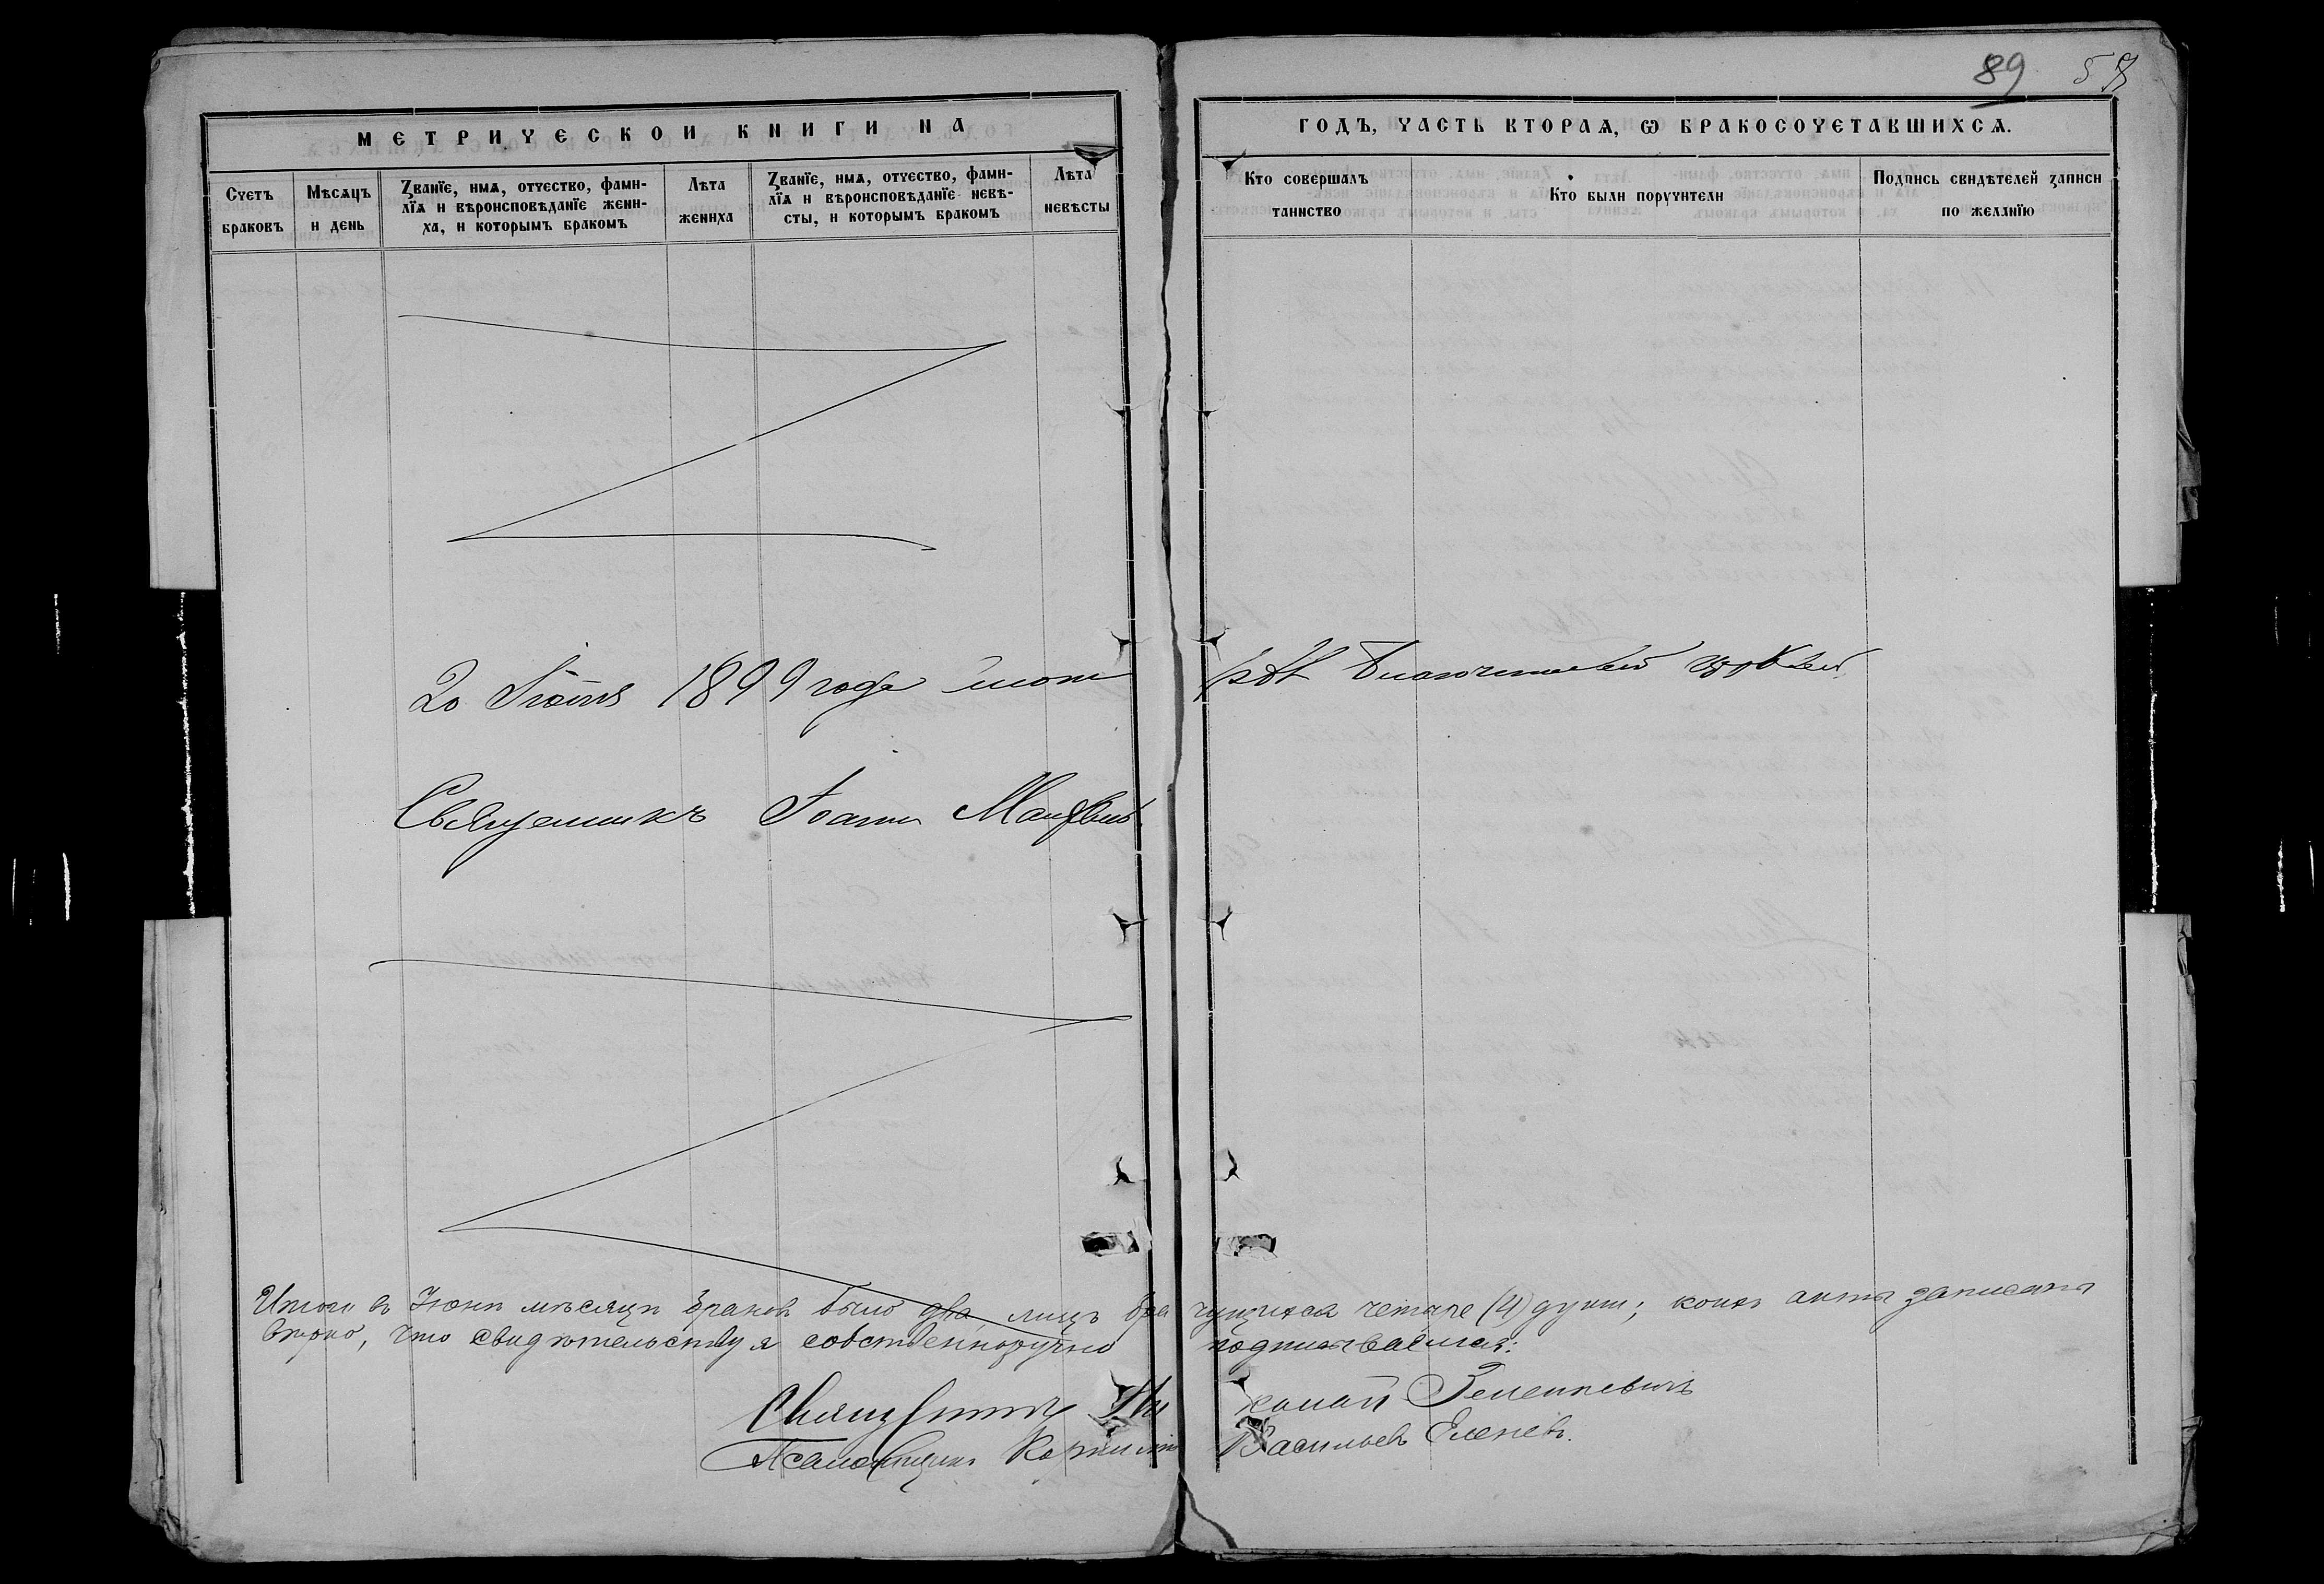 89 57
МЕТРИЧЕСКОЙ КНИГИ НА
ГОДЪ, ЧАСТЬ ВТОРАѦ, Ѡ БРАКОСОЧЕТАВШИХСѦ.
Счетъ браковъ
Мѣсѧцъ и день
Званїе, имѧ, отчество, фами-
лїѧ и вѣроисповѣданїе жени-
ха, и которымъ бракомъ
Лѣта жениха
Званїе, имѧ, отчество, фами-
лїѧ и вѣроисповѣданїе невѣ-
сты, и которымъ бракомъ
Лѣта невѣсты
Кто совершалъ таинство
Кто были поручители
Подпись свидѣтелей записи
по желанїю
20 1899 года
Священникъ Іоаннъ
Итого въ Іюнѣ мѣсяцѣ браковъ было два, лицъ бра чущихся четыре (4) душ; коихъ акты записаны
вѣрно, что свидѣтельствуя собственноручно подписываемся:
Священникъ Зеленкевичъ
Псаломщикъ Васильевъ Еленевъ.